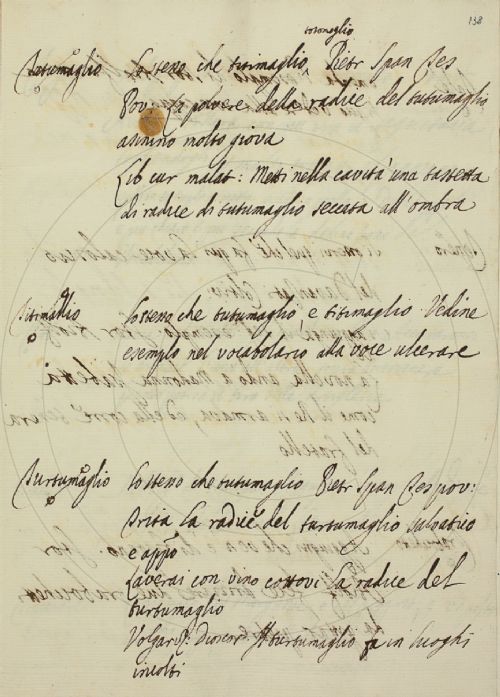 138
totomaglio
Tutumaglio Lo stesso che titimaglio Pietr Span Tes
Pov: La polvere della radice del tutumaglio
asinino molto giova
Lib cur malat: Metti nella cavità una tastetta
di radice di tutumaglio seccata all'ombra
Titimaglio Lo stesso che tutumaglio, e titimaglio Vedine
esempio nel vocabolario alla voce ulcerare
Turtumaglio Lo stesso che tutumaglio Pietr Span Tes pov:
Trita la radice del turtumaglio salvatico
e appo
Laverai con vino cottovi la radice del
turtumaglio
Volgar. Dioscor Il turtumaglio fa in luoghi
incolti